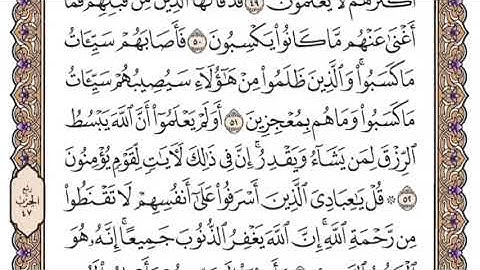 أَكْثَرَهُمْ لَا يَعْلَمُونَ ٤٩ قَدْ قَالَهَا الَّذِينَ مِن قَبْلِهِمْ فَمَا
أَغْنَىٰ عَنْهُم مَّا كَانُوا۟ يَكْسِبُونَ ٥٠ فَأَصَابَهُمْ سَيِّـَٔاتُ
مَا كَسَبُوا۟ ۚ وَالَّذِينَ ظَلَمُوا۟ مِنْ هَٰٓؤُلَآءِ سَيُصِيبُهُمْ سَيِّـَٔاتُ
مَا كَسَبُوا۟ وَمَا هُم بِمُعْجِزِينَ ٥١ أَوَلَمْ يَعْلَمُوٓا۟ أَنَّ اللَّهَ يَبْسُطُ
الرِّزْقَ لِمَن يَشَآءُ وَيَقْدِرُ ۚ إِنَّ فِى ذَٰلِكَ لَءَايَٰتٍ لِّقَوْمٍ يُؤْمِنُونَ
٥٢ ۞ قُلْ يَٰعِبَادِىَ الَّذِينَ أَسْرَفُوا۟ عَلَىٰٓ أَنفُسِهِمْ لَا تَقْنَطُوا۟
مِن رَّحْمَةِ اللَّهِ ۚ إِنَّ اللَّهَ يَغْفِرُ الذُّنُوبَ جَمِيعًا ۚ إِنَّهُۥ هُوَ
ربع
الحزب
٤٧